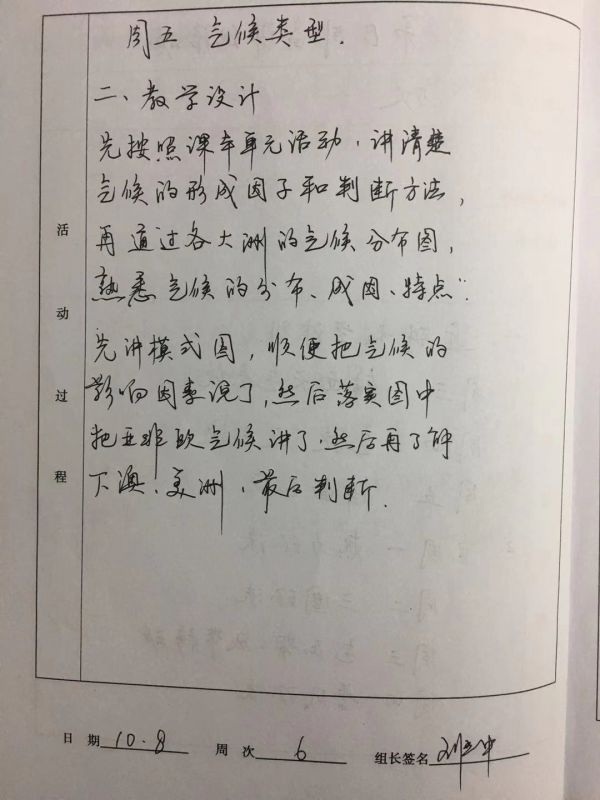 周五 气候类型.
二、教学设计
先按照课本单元活动,讲清楚
气候的形成因子和判断方法,
再通过各大洲的气候分布图,
熟悉气候的分布、成因、特点".
先讲模式图,顺便把气候的
影响因素说了,然后落实图中
把亚非欧气候讲了.然后再了解
下澳、美洲,最后判断.
活动过程
日 期 10.8 周 次 6 组长签名